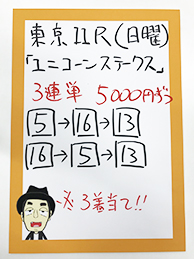 東京11R(日曜)
「ユニコーンステークス」
3連単 5000円ずつ
5→16→13
16→5→13
必3着当て!!